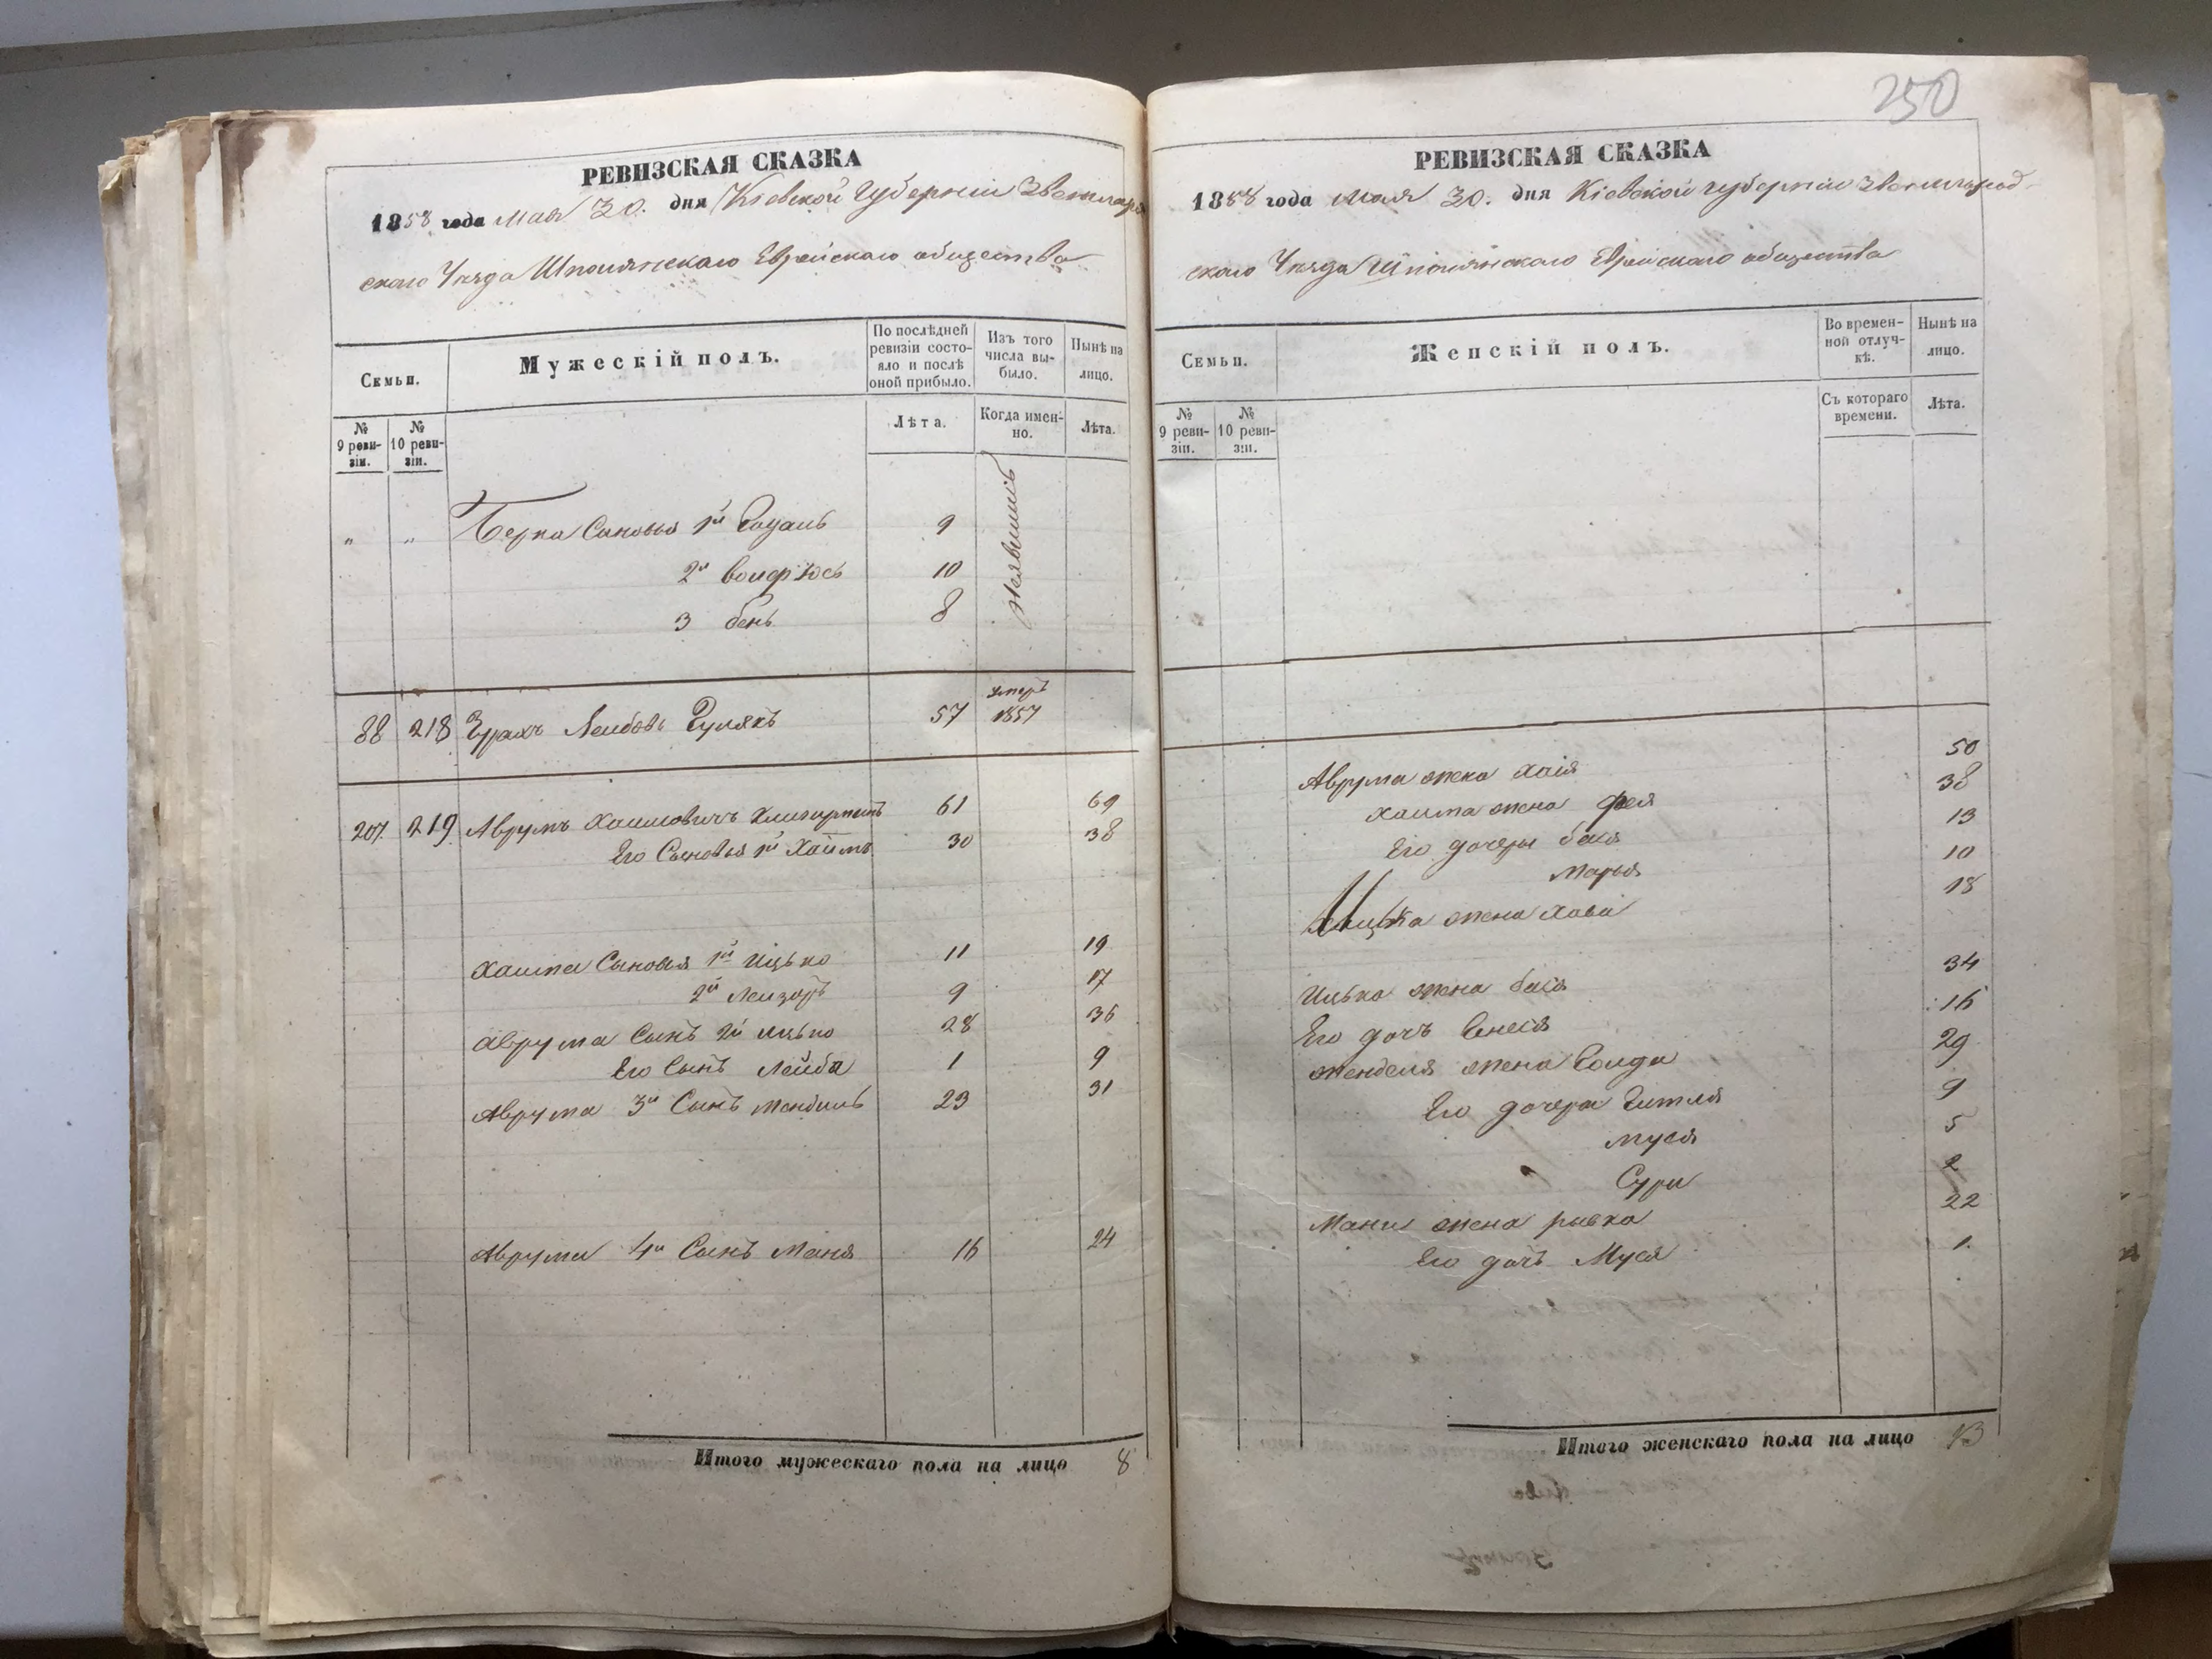 РЕВИЗСКАЯ СКАЗКА
1858 года Мая 30. дня Кіевской Губерніи Звенигород
скаго Уѣзда Шполянскаго Еврейскаго общества
Семьи.
Мужескій полъ.
По послѣдней ревизіи состояло и послѣ оной прибыло.
Изъ того числа выбыло.
Нынѣ на лицо.
№ 9 ревизіи.
№ 10 ревизіи.
Лѣта.
Когда именно.
Лѣта.
" " Берка Сыновья 1й 9
2й 10
3 бень 8
88 218 Лейбовъ Гулякъ 57 умеръ 1857
207 219 Аврумъ Хаимовичъ 61 69
Его Сыновья 1й Хаимъ 30 38
Хаима Сыновья 1й Ицько 11 19
2й Лейзоръ 9 17
Аврума Сынъ 2й Ицько 28 36
Его Сынъ Лейба 1 9
Аврума 3й Сынъ Мендель 23 31
Аврума 4й Сынъ Маня 16 24
Итого мужескаго пола на лицо 8
250
РЕВИЗСКАЯ СКАЗКА
1858 года Мая 30. дня Кіевской губерніи Звенигород
скаго Уѣзда Шполянскаго Еврейскаго общества
Семьи.
Женскій полъ.
Во временной отлучкѣ.
Нынѣ на лицо.
№ 9 ревизіи.
№ 10 ревизіи.
Съ котораго времени.
Лѣта.
Аврума жена Хаія 50
Хаима жена Фея 38
Его дочери бася 13
Марья 10
Ицька жена Хава 18
Ицька жена бася 34
Его дочь Енеся 16
Менделя жена Голда 29
Его дочери Гитля 9
Муся 5
Сура 2
Мани жена ривка 22
Его дочь Муся 1.
Итого женскаго пола на лицо 13